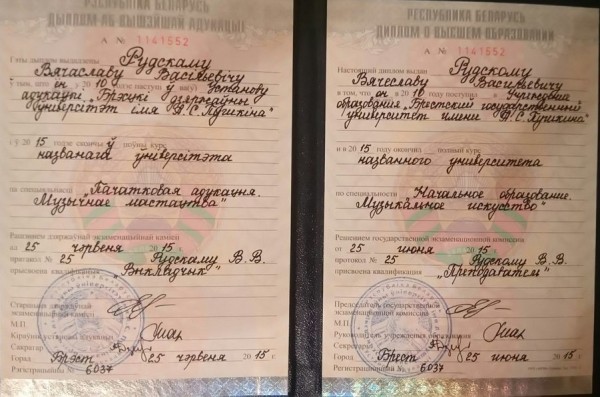 РЭСПУБЛІКА БЕЛАРУСЬ
ДЫПЛОМ АБ ВЫШЭЙШАЙ АДУКАЦЫІ
А № 1141552
Гэты дыплом выдадзены Рудскому
Вячаславу Васільевічу
ў тым, што ён у 2010 годзе паступіў ва Установу
адукацыі „Брэсцкі дзяржаўны
ўніверсітэт імя А.С. Пушкіна"
і ў 2015 годзе скончыў поўны курс
названага ўніверсітэта
па спецыяльнасці „Пачатковая адукацыя.
Музычнае мастацтва"
Рашэннем дзяржаўнай экзаменацыйнай камісіі
ад 25 чэрвеня 2015 г.
пратакол № 25 Рудскому В.В.
прысвоена кваліфікацыя „Выкладчык"
Старшыня дзяржаўнай
экзаменацыйнай камісіі
М.П.
Кіраўнік установы адукацыі
Сакратар
Горад Брэст 25 чэрвеня 2015 г.
Рэгістрацыйны № 6037
РЕСПУБЛИКА БЕЛАРУСЬ
ДИПЛОМ О ВЫСШЕМ ОБРАЗОВАНИИ
А № 1141552
Настоящий диплом выдан Рудскому
Вячеславу Васильевичу
в том, что он в 2010 году поступил в Учреждение
образования „Брестский государственный
университет имени А.С. Пушкина"
и в 2015 году окончил полный курс
названного университета
по специальности „Начальное образование.
Музыкальное искусство"
Решением государственной экзаменационной комиссии
от 25 июня 2015 г.
протокол № 25 Рудскому В.В.
присвоена квалификация „Преподаватель"
Председатель государственной
экзаменационной комиссии
М.П.
Руководитель учреждения образования
Секретарь
Город Брест 25 июня 2015 г.
Регистрационный № 6037